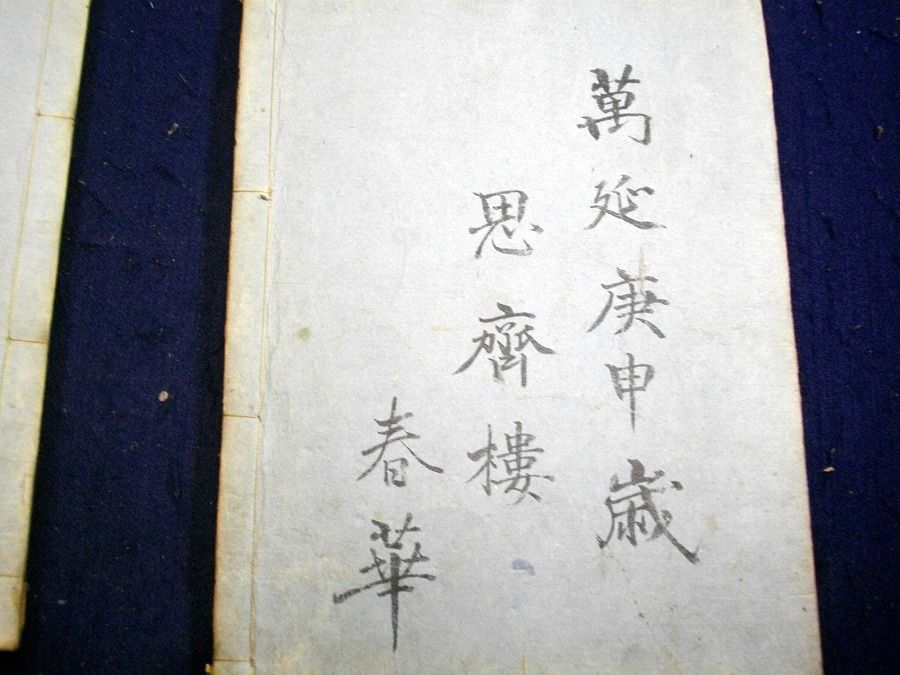 萬延庚申歳
思齊樓
春華